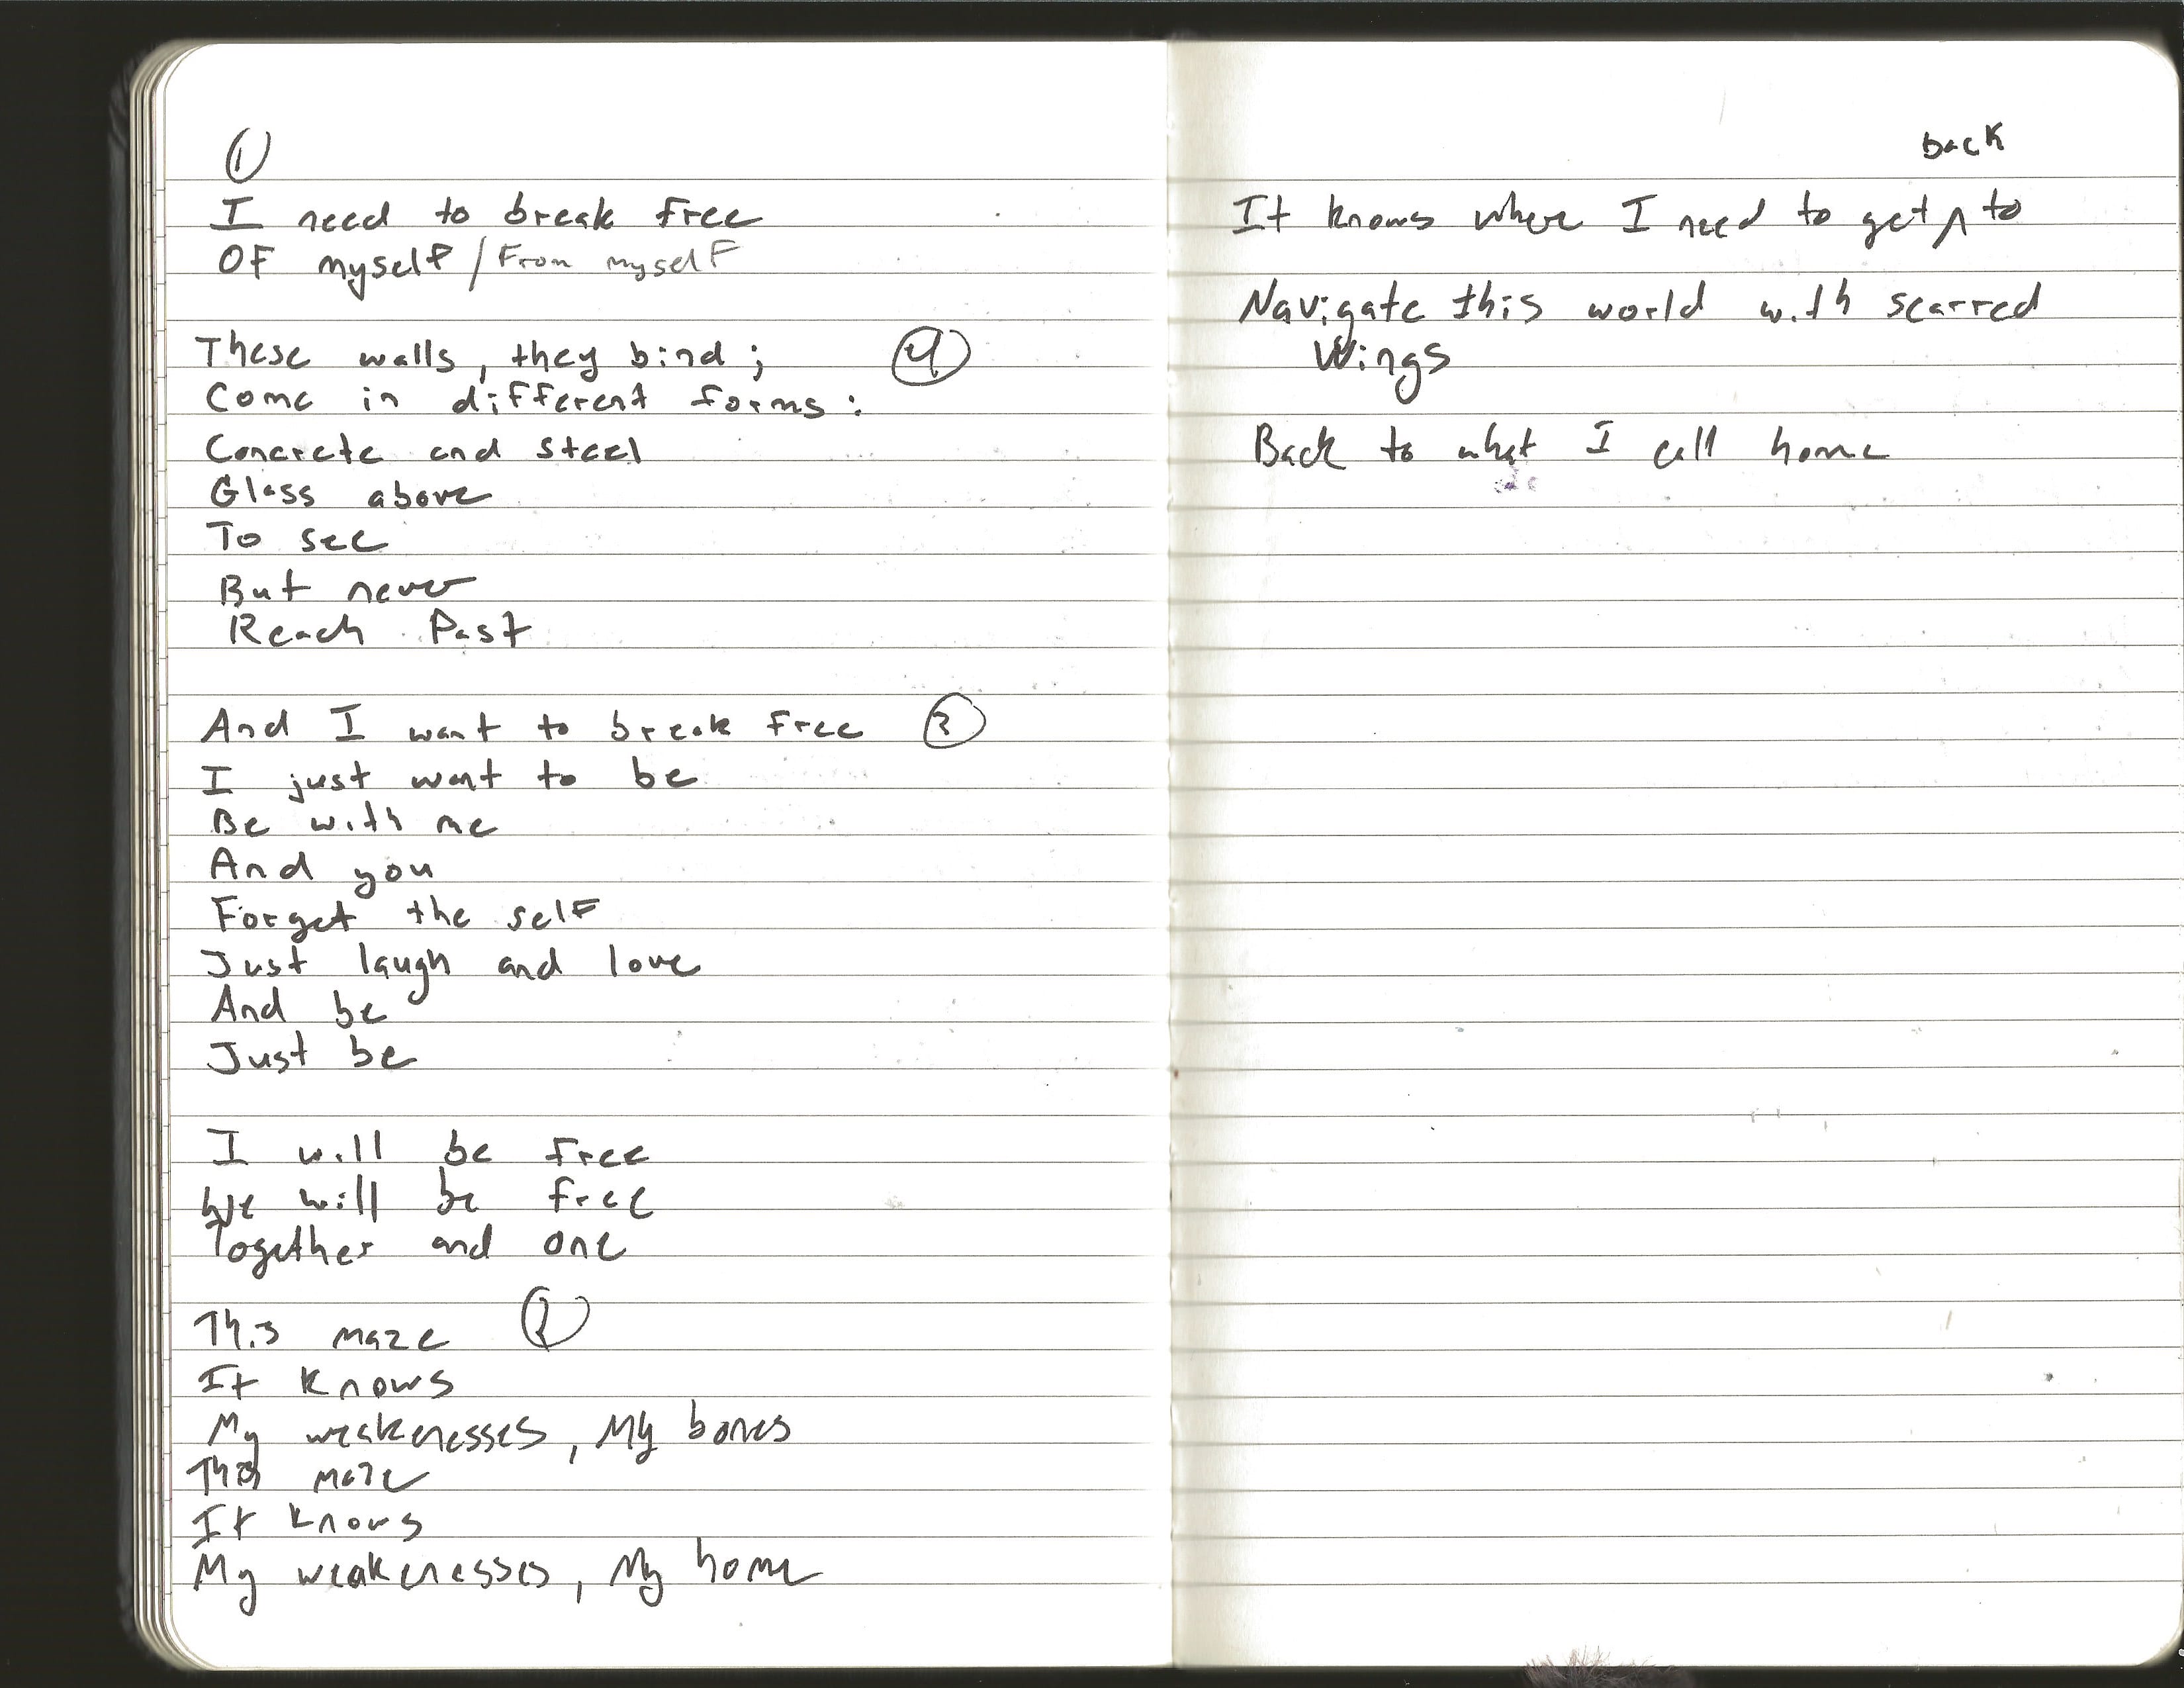 ①
I need to break free
Of myself / From myself
These walls, they bind; ④
Come in different forms:
Concrete and steel
Glass above
To see
But never
Reach Past
And I want to break free ③
I just want to be
Be with me
And you
Forget the self
Just laugh and love
And be
Just be
I will be free
We will be free
Together and one
This maze ②
It knows
My weaknesses, My bones
This maze
It knows
My weaknesses, My home
back
It knows where I need to get ^ to
Navigate this world with scarred
Wings
Back to what I call home